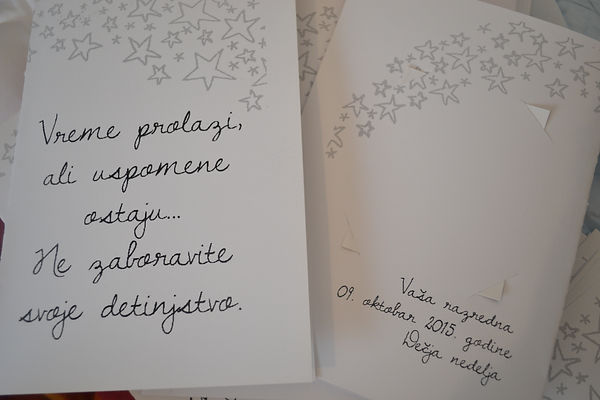 Vreme prolazi,
ali uspomene
ostaju...
Ne zaboravite
svoje detinjstvo.
Vaša razredna
09. oktobar 2015. godine
Dečja nedelja